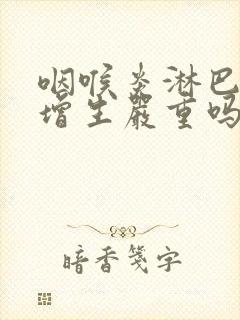 咽喉炎淋巴
增生嚴重吗
暗香箋字